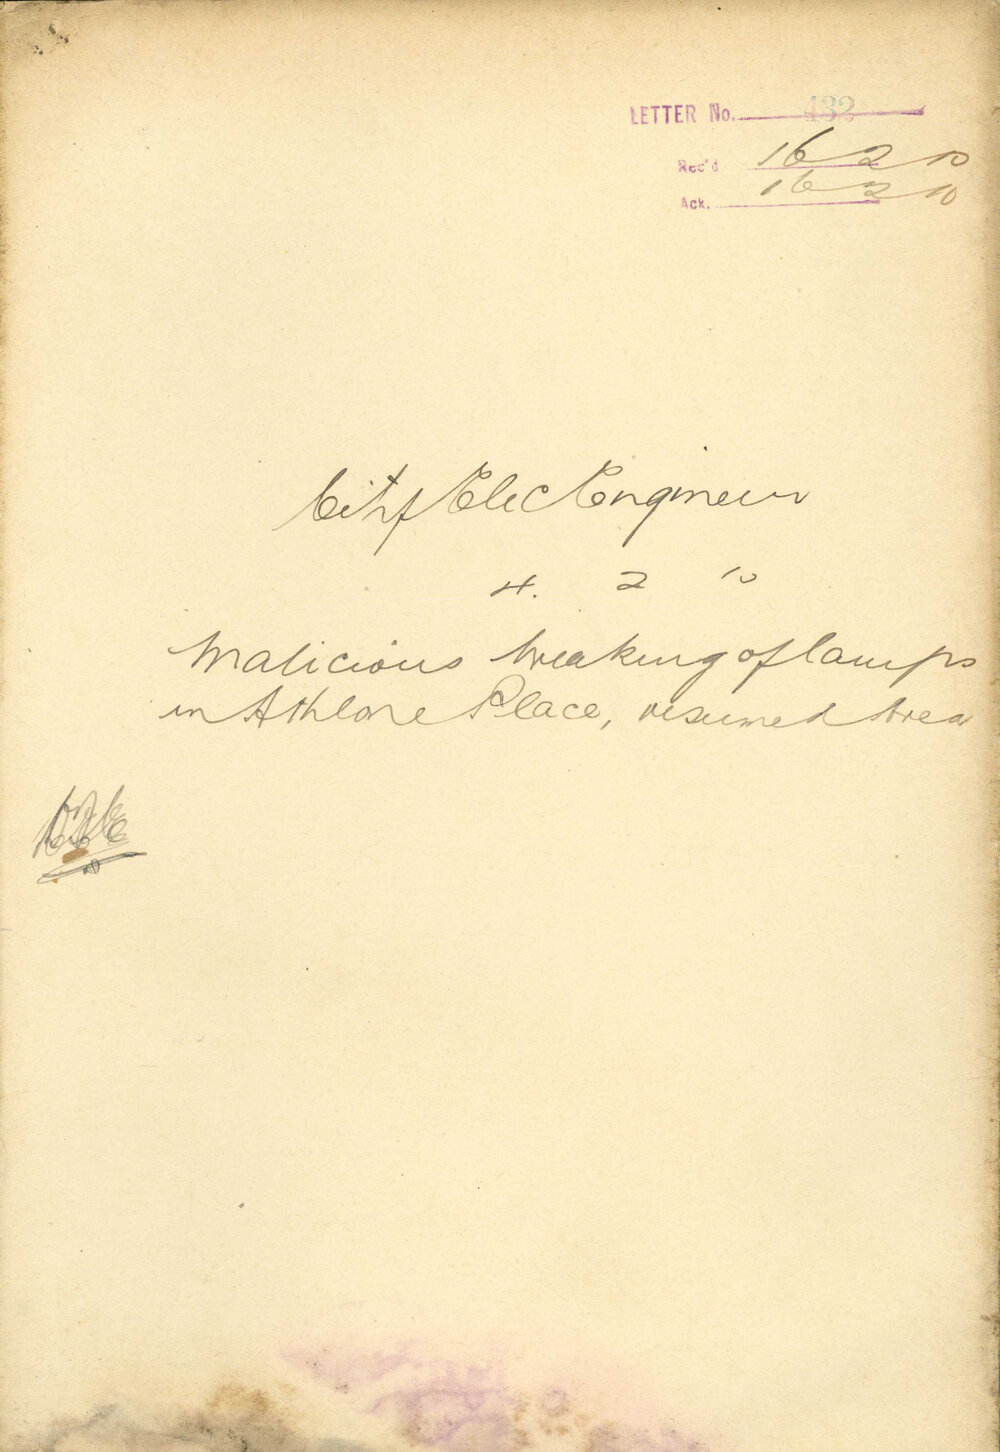 LETTER No. 432
Rec'd 16 2 10
Ack. 16 2 10
City Elec Engineer
4. 2 10
Malicious breaking of lamps
in Athlone Place, resumed Area